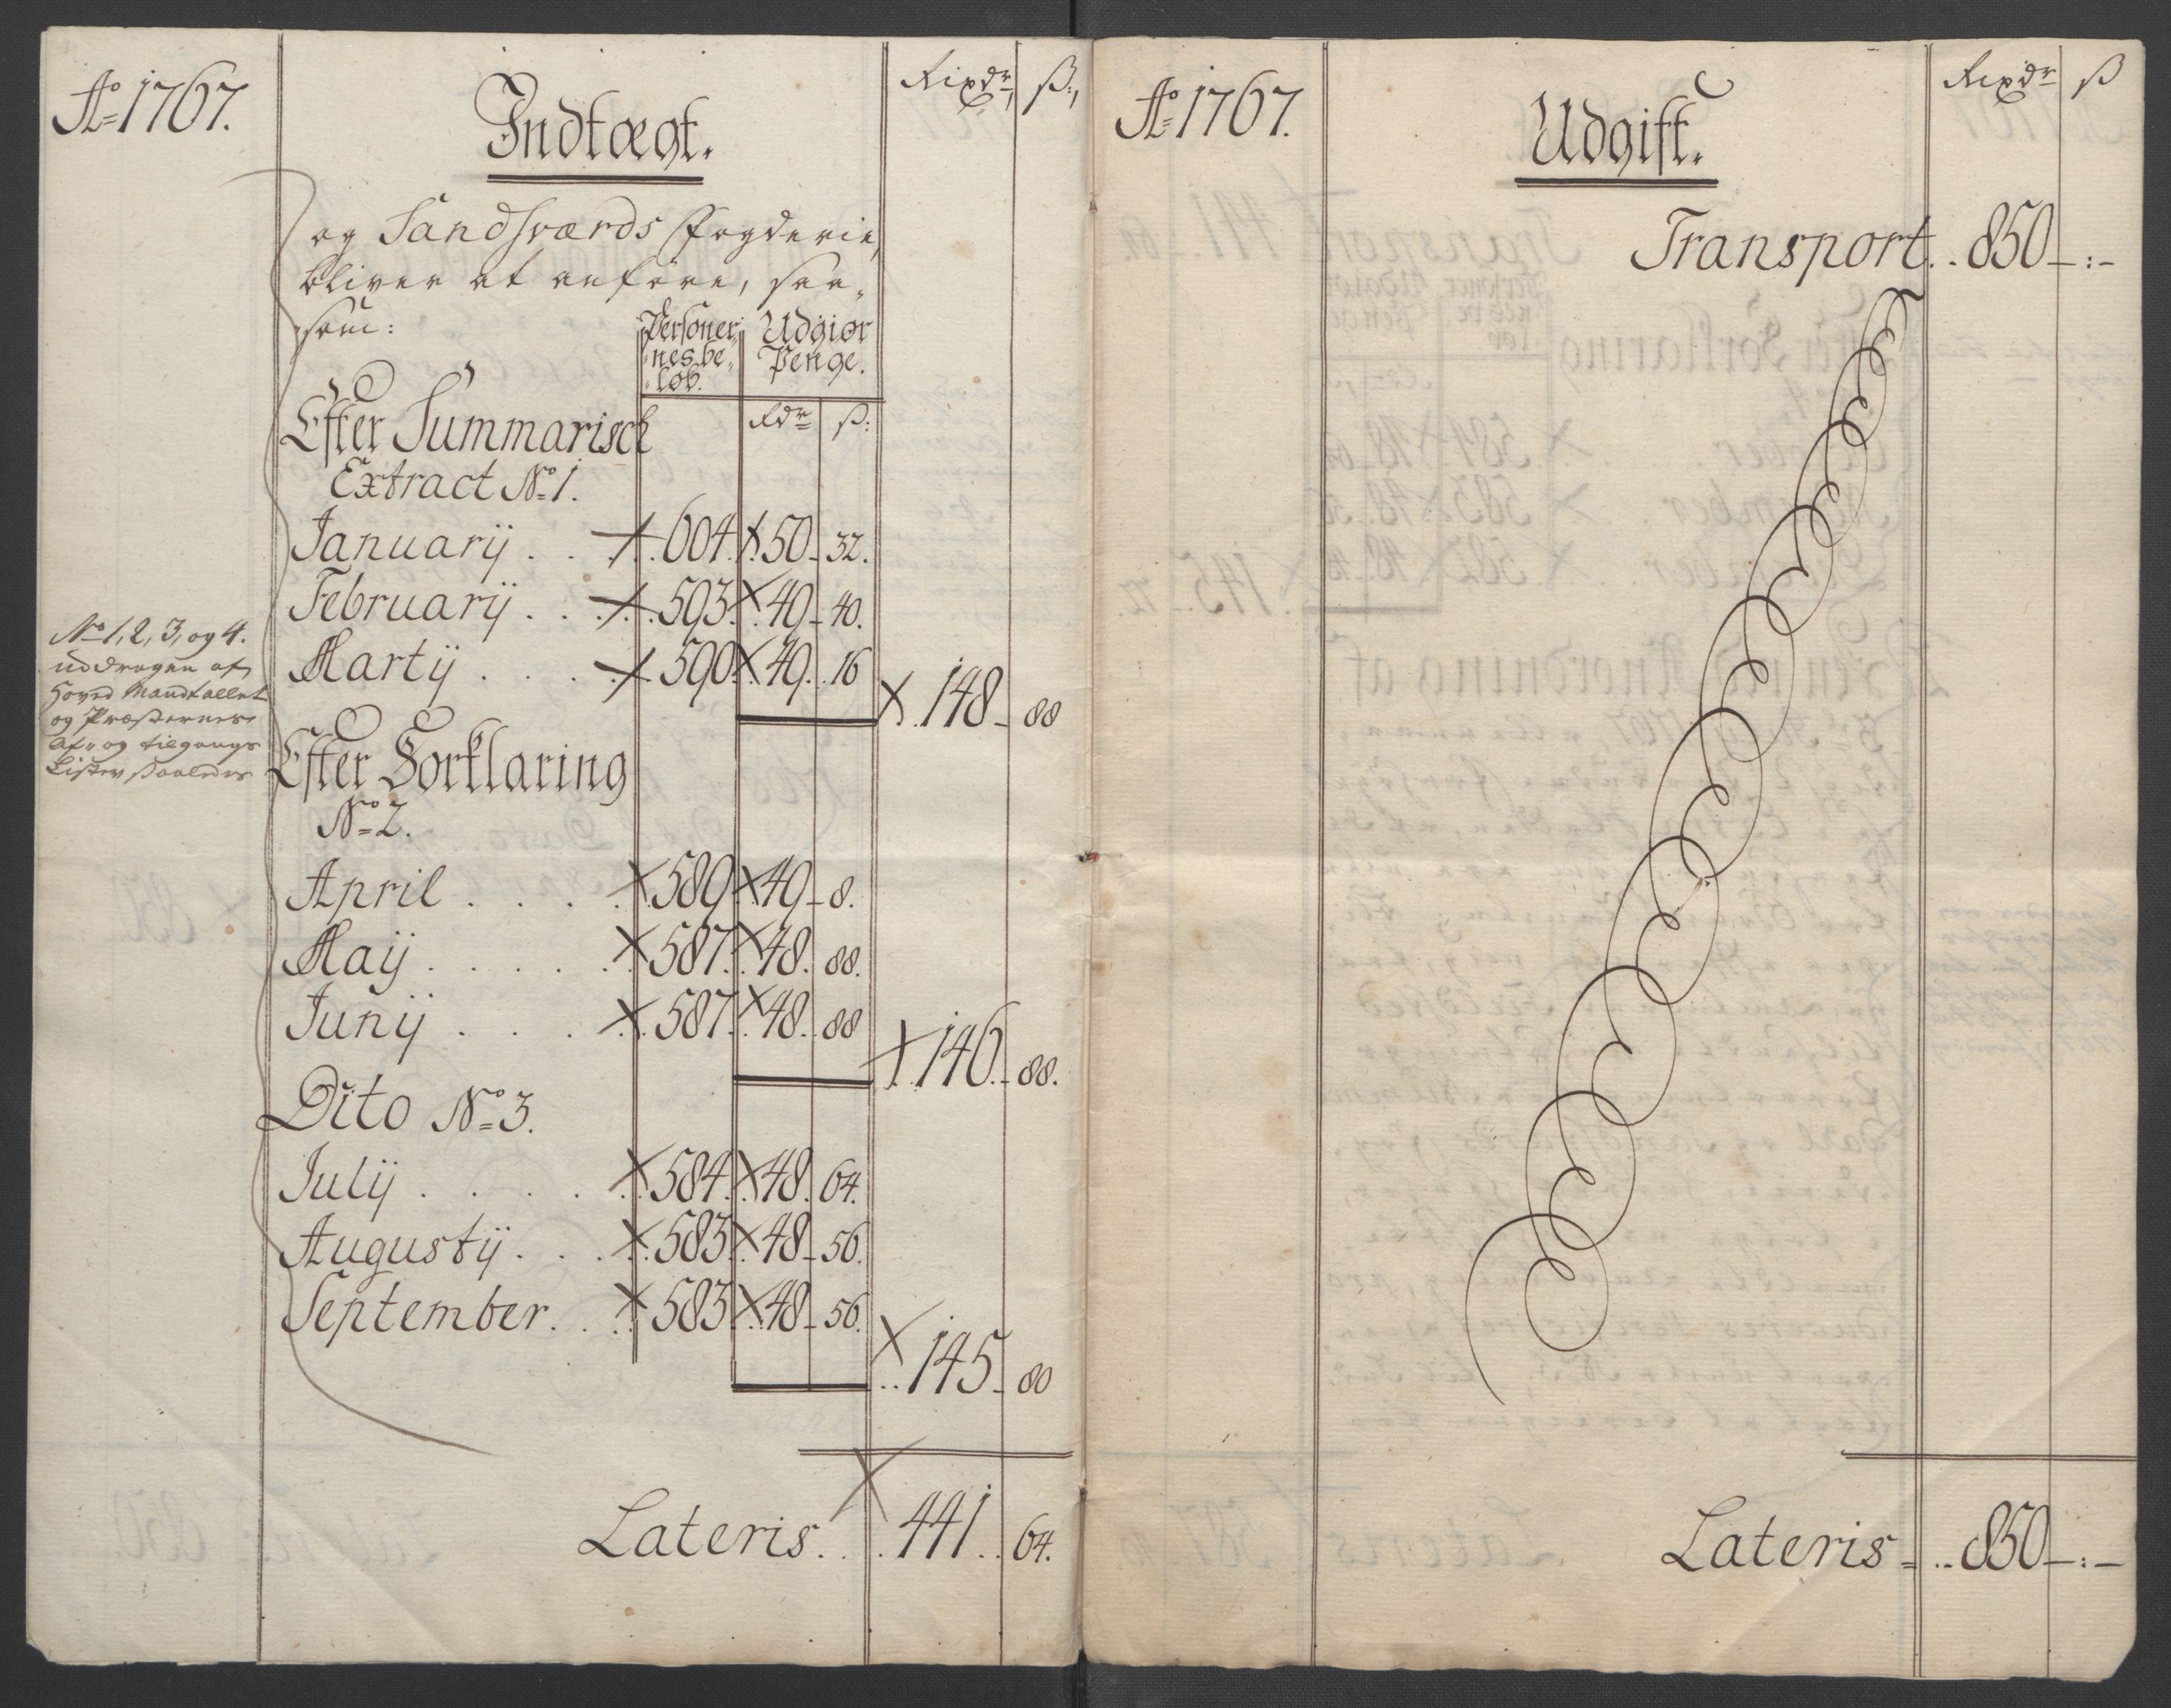 Ao 1767.
Indtægt.
Rixdr, ß:,
og Sandsværds Fogderie,
bliver at anføre, saa„
som:
Personer„ Udgiør
„nes be„ Penge.
„løb.
Rdr ß:
Efter Summarisch
Extract No 1.
Januarij . . 604. 50 - 32.
Februarij . . 593. 49 - 40.
Martij . . . 590. 49. 16
148 - 88
No 1, 2, 3, og 4.
uddragen af
Hoved Mandtallet
og Præsternes
Af„ og tilgangs
Lister saaledes
Efter Forklaring
No 2.
April . . . 589. 49 - 8.
Maij . . . . . 587. 48. 88.
Junij . . . 587. 48. 88
146. - 88.
Dito No 3.
Julij . . . . 584. 48. 64.
Augustij . . . 583. 48 - 56.
September . . . 583. 48 - 56.
. . 145 - 80
Lateris . . . 441 . . 64.
Ao 1767.
Udgift.
Rixdr ß
Transport . . 850 - : -
Lateris = . . 850 - : -